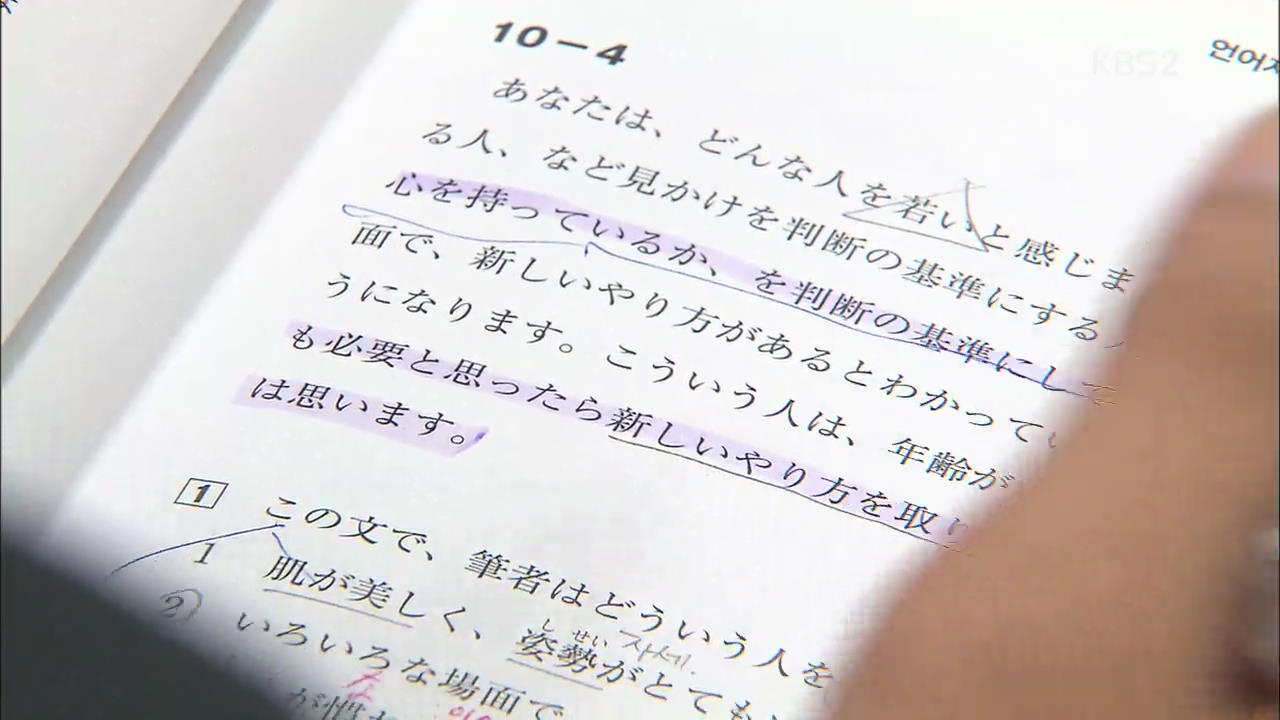 KBS2
언어
10-4
あなたは、どんな人を若いと感じま
る人、など見かけを判断の基準にする
心を持っているか、を判断の基準にして
面で、新しいやり方があるとわかってい
うになります。こういう人は、年齢が
も必要と思ったら新しいやり方を取り
は思います。
1 この文で、筆者はどういう人を
1 肌が美しく、姿勢がとても
しせい 자세
2 いろいろな場面で
が慣